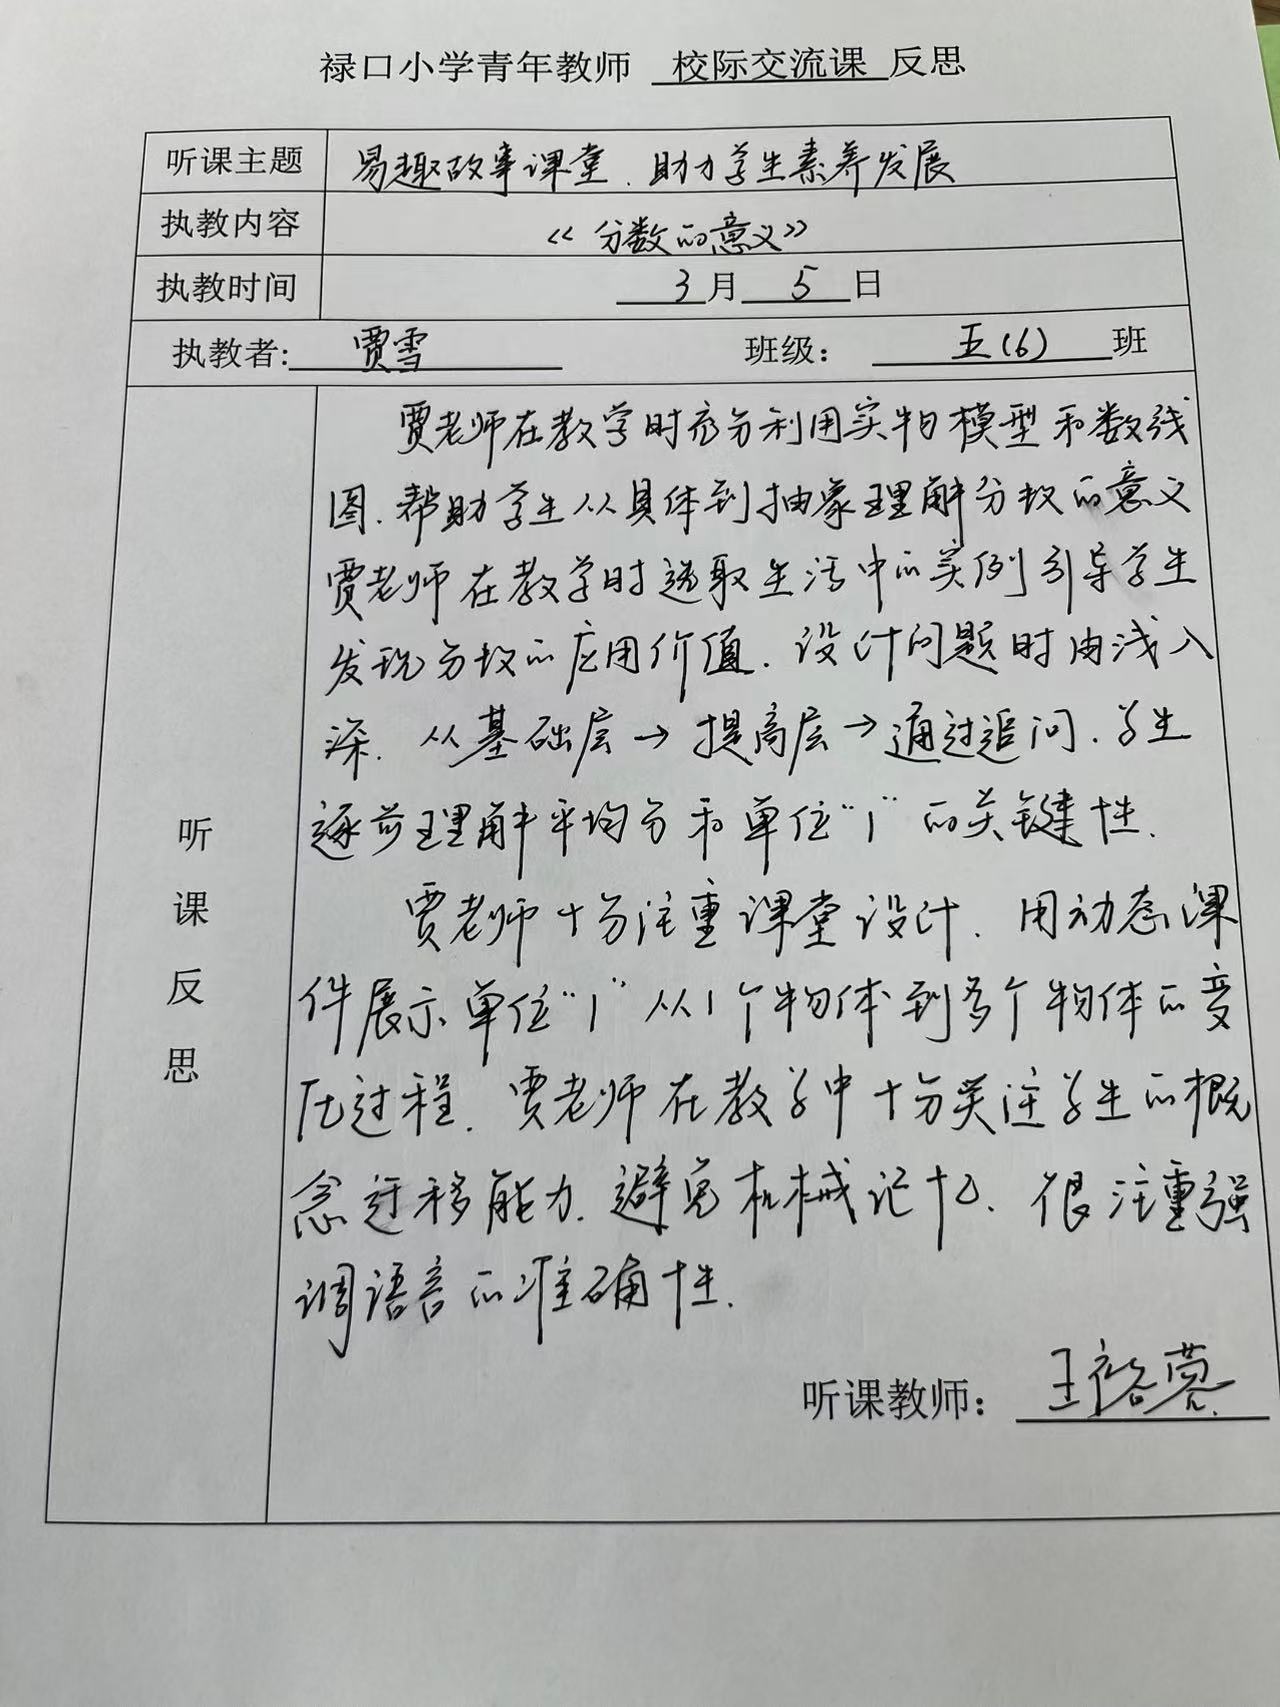 禄口小学青年教师 校际交流课 反思
听课主题 易趣故事课堂、助力学生素养发展
执教内容 《分数的意义》
执教时间 3月5日
执教者: 贾雪 班级: 五(6)班
听课反思
贾老师在教学时充分利用实物模型和数线
图、帮助学生从具体到抽象理解分数的意义
贾老师在教学时选取生活中的实例引导学生
发现分数的应用价值、设计问题时由浅入
深、从基础层→提高层→通过追问、学生
逐步理解平均分和单位“1”的关键性.
贾老师十分注重课堂设计、用动态课
件展示单位“1”从1个物体到多个物体的变
化过程、贾老师在教学中十分关注学生的概
念迁移能力、避免机械记忆、很注重强
调语言的准确性.
听课教师: 王